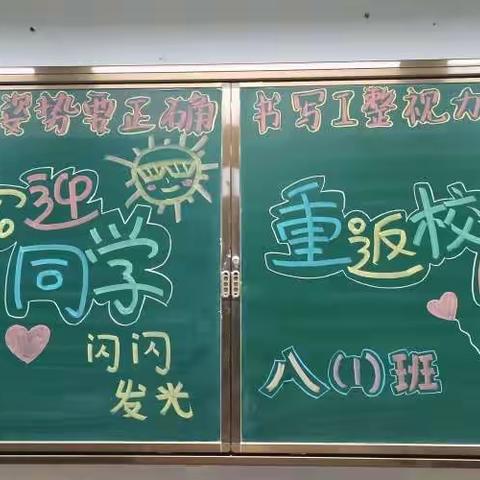 姿势要正确
书写工整视力
迎
同学
闪闪
发光
重返校
八(1)班